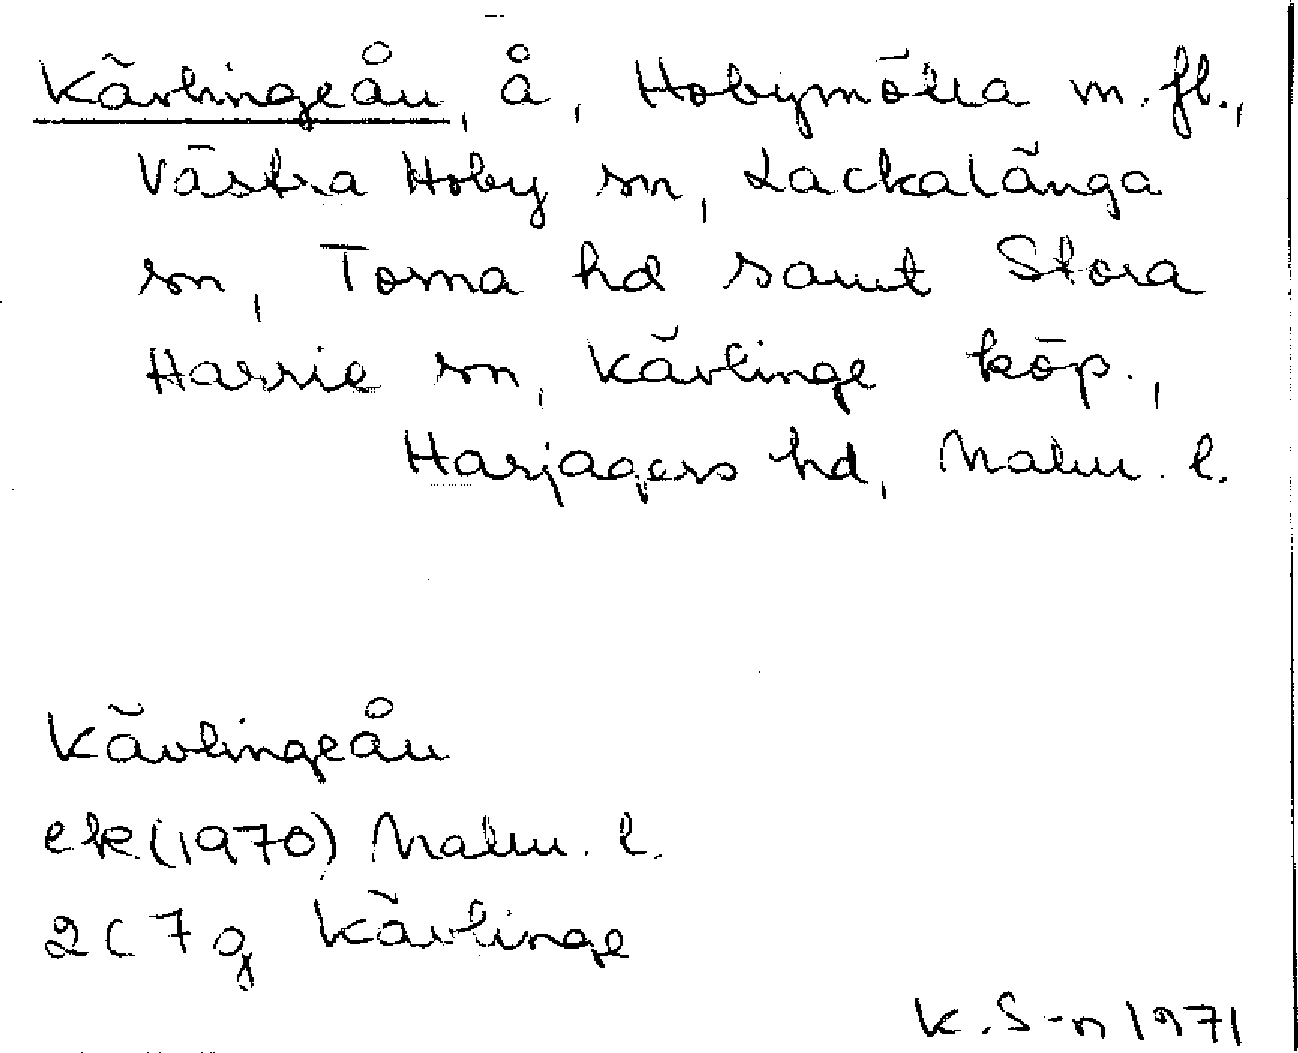 Kävlingeån, å, Hobymölla m.fl.,
Västra Hoby sn, Lackalänga
sn, Torna hd samt Stora
Harrie sn, Kävlinge köp.,
Harjagers hd, Malm. l.
Kävlingeån
ek(1970) Malm. l.
2C 7g Kävlinge
K.S-n 1971